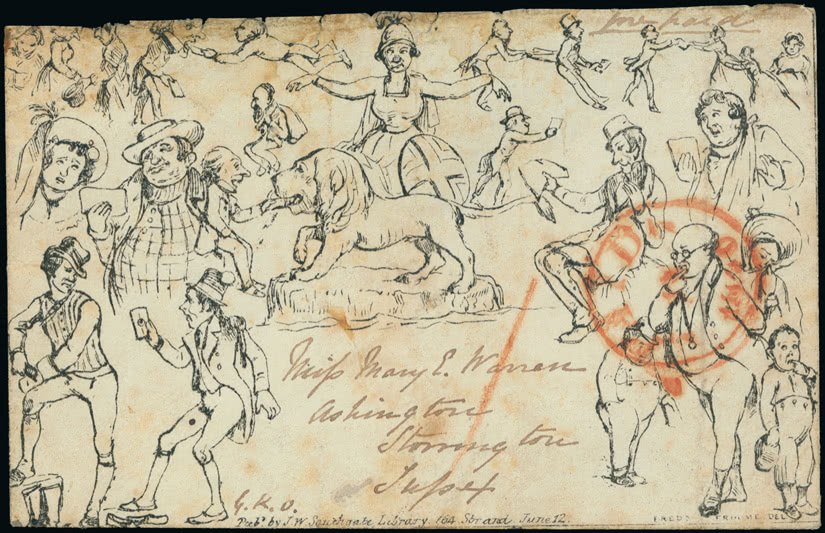 paid
Miss Mary E. Warren
Ashington
Storrington
Sussex
G. K. O.
Pubd by J. W. Southgate Library. 164. Strand June 12.
DEL